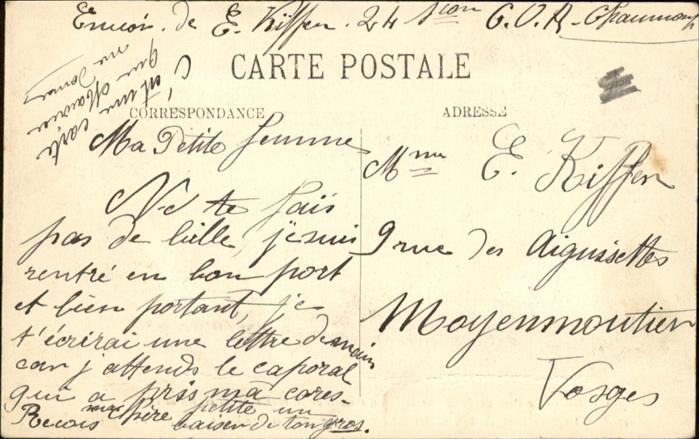 Envoi de E. Kiffer. 24 Son C.O.A. Chaumont
c'est une carte
que Maurice
me donne
CARTE POSTALE
CORRESPONDANCE
ADRESSE
Ma Petite femme
Ne te fais
pas de bille, je suis
rentré en bon port
et bien portant, je
t'écrirai une lettre demain
car j'attends le caporal
qui a pris ma cares-
Recois ma chère petite un
baiser de ton gros.
Mme E. Kiffer
9 rue des Aiguisettes
Moyenmoutier
Vosges